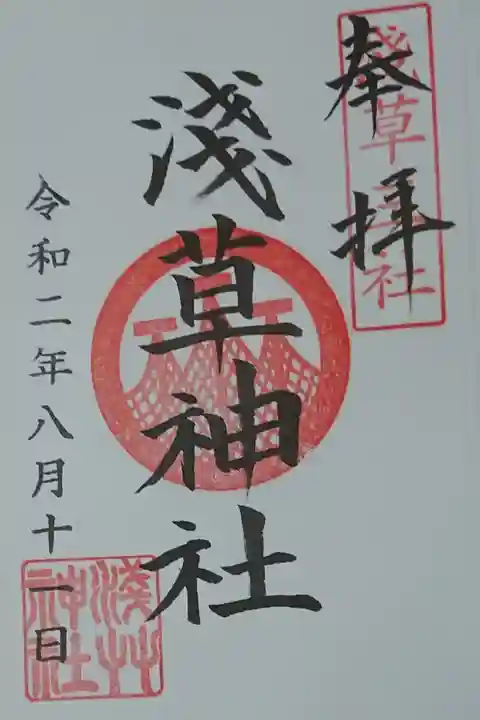 奉拝
淺草三社
淺草神社
令和二年八月十一日
淺草
神社